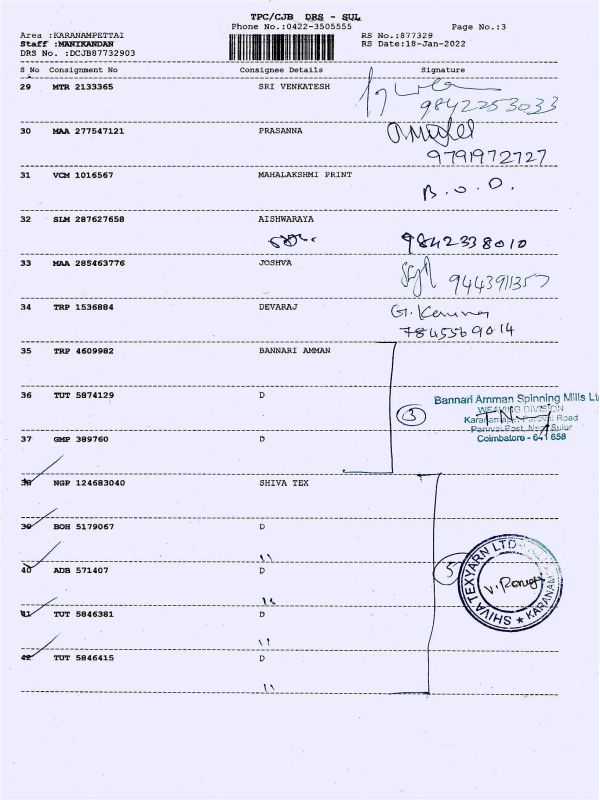 TPC/CJB DRS - SUL
Phone No.:0422-3505555 Page No.:3
Area :KARANAMPETTAI RS No.:877329
Staff :MANIKANDAN RS Date:18-Jan-2022
DRS No. :DCJB87732903
S No Consignment No Consignee Details Signature
29 MTR 2133365 SRI VENKATESH
9842253033
30 MAA 277547121 PRASANNA
9791972727
31 VCM 1016567 MAHALAKSHMI PRINT
B.O.O.
32 SLM 287627658 AISHWARAYA
9842338010
33 MAA 285463776 JOSHVA
9443911357
34 TRP 1536884 DEVARAJ
7845569014
35 TRP 4609982 BANNARI AMMAN
36 TUT 5874129 D
3 Bannari Amman Spinning Mills Lt
WEAVING DIVISION
Road
Post, Sulur
37 GMP 389760 D Coimbatore - 641 658
38 NGP 124683040 SHIVA TEX
39 BOH 5179067 D
"
40 ADB 571407 D
5 SHIVA TEXYARN LTD
KARANAM
"
41 TUT 5846381 D
"
42 TUT 5846415 D
"